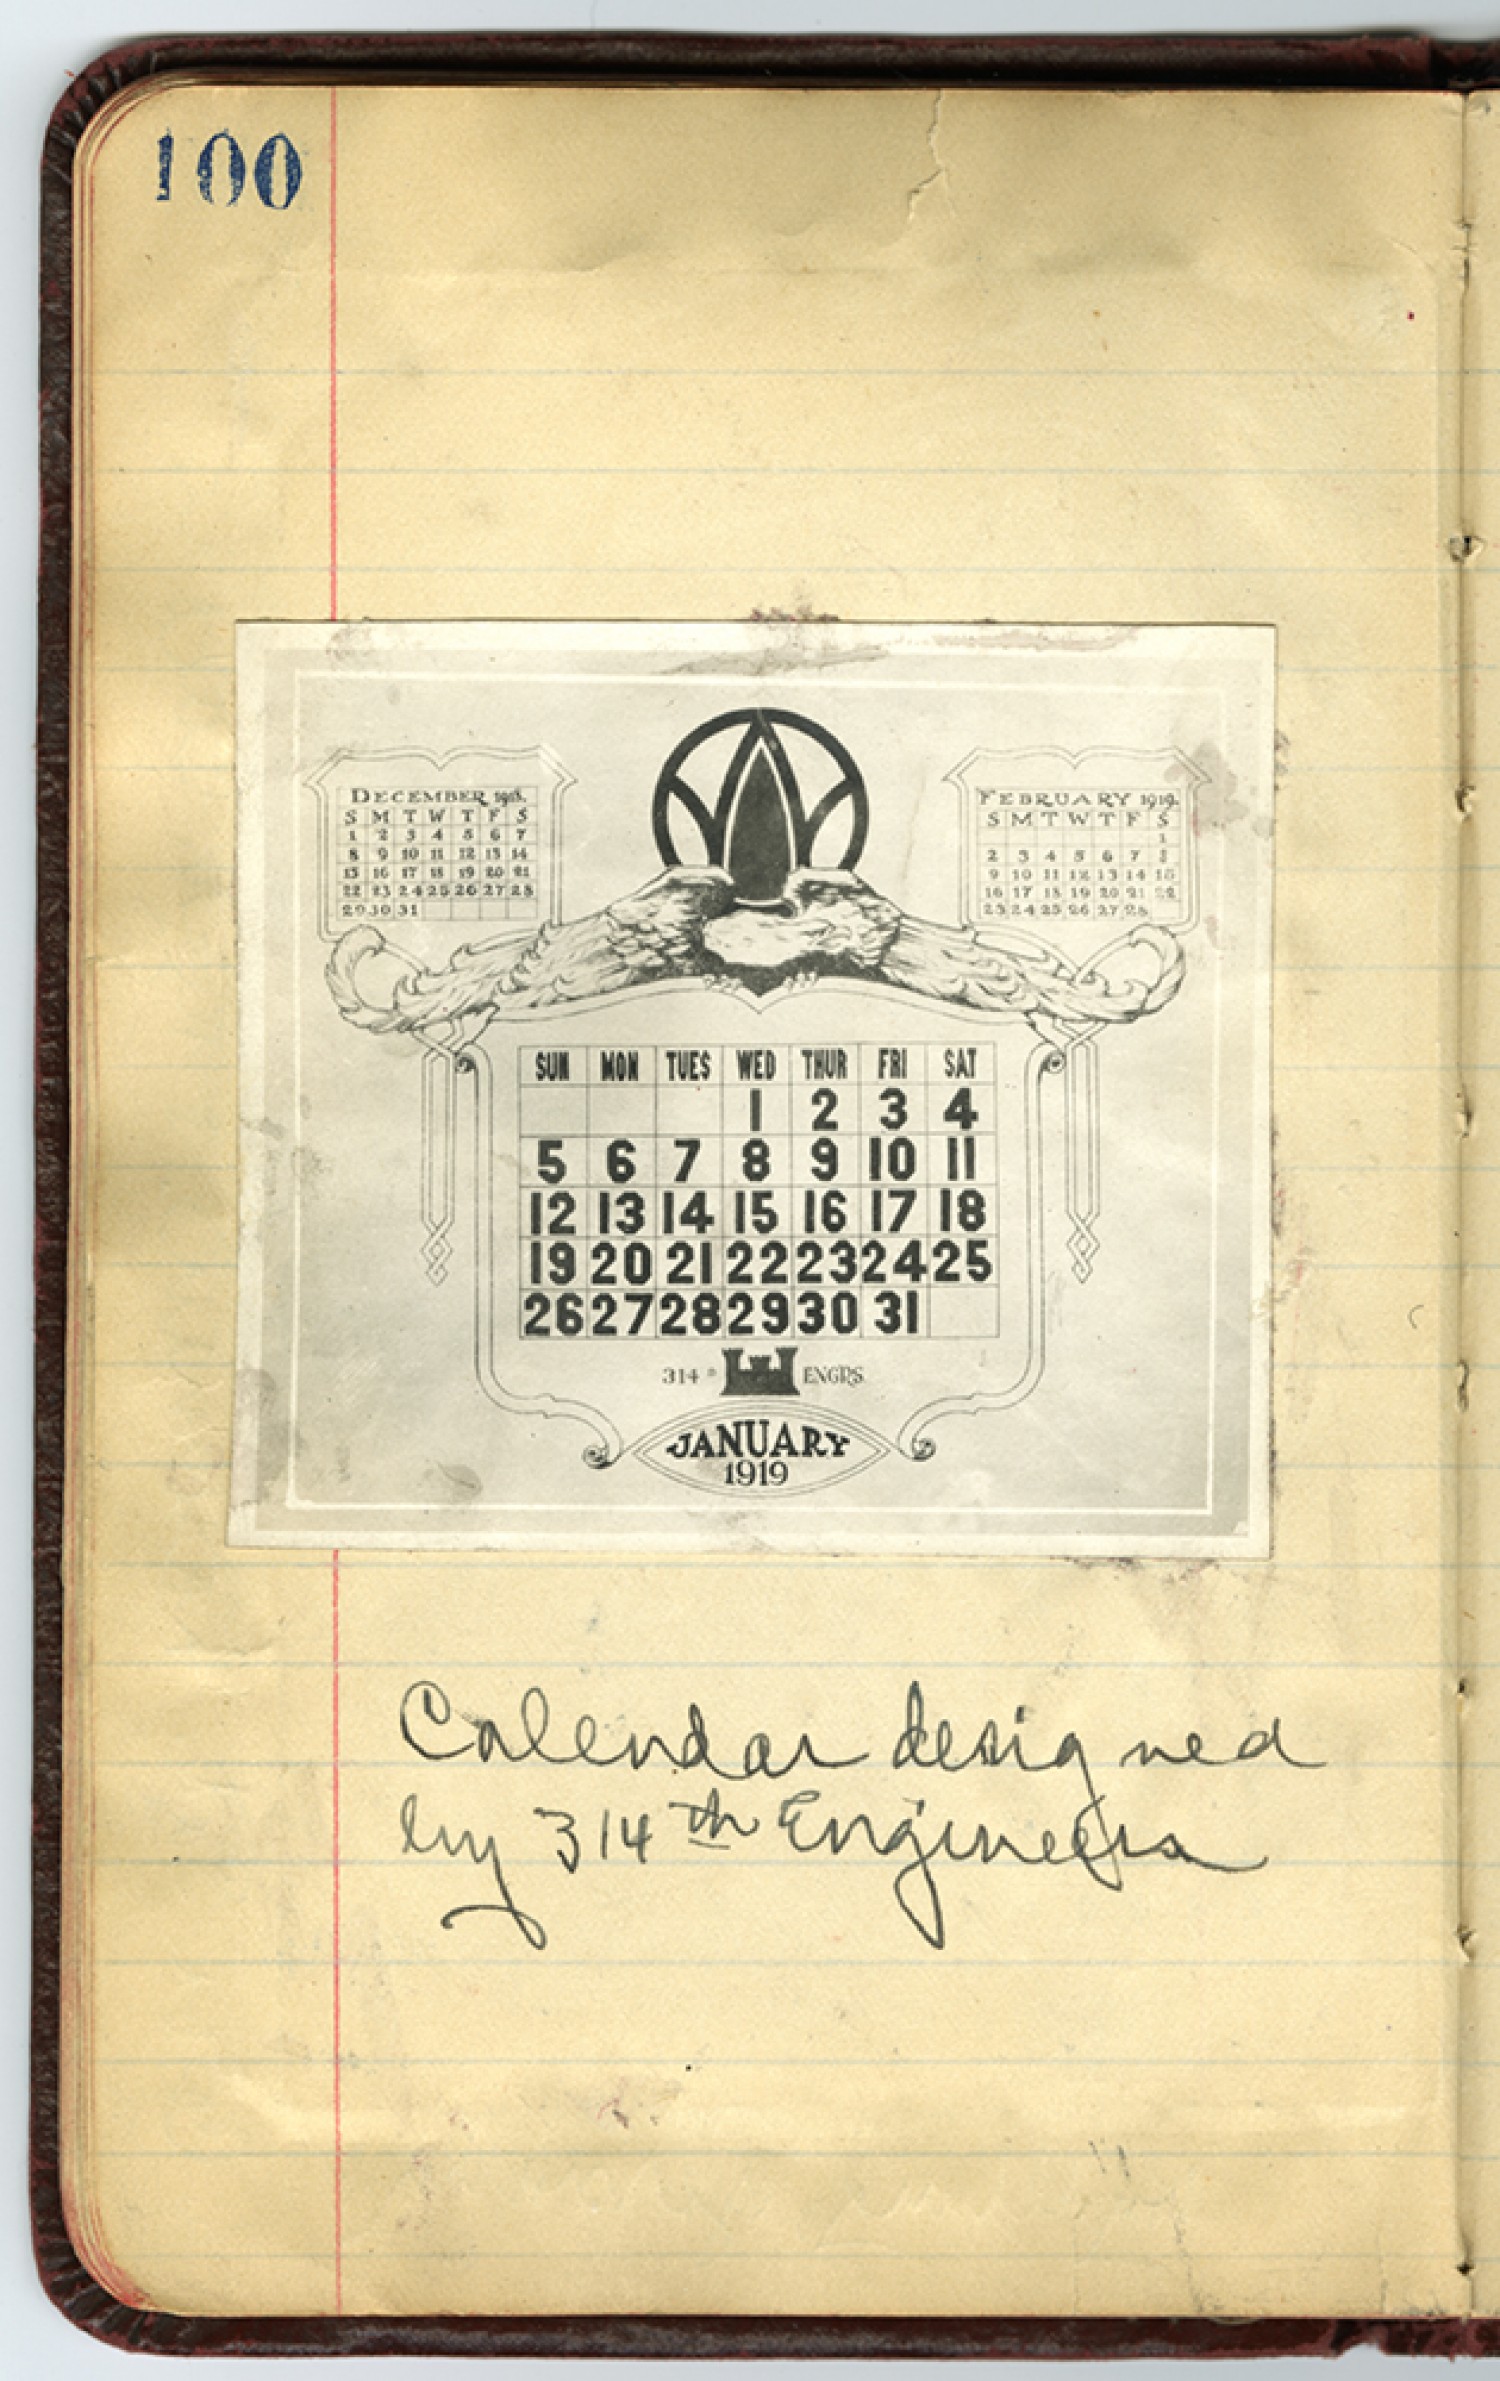 100
DECEMBER 1918.
S M T W T F S
1 2 3 4 5 6 7
8 9 10 11 12 13 14
15 16 17 18 19 20 21
22 23 24 25 26 27 28
29 30 31
FEBRUARY 1919.
S M T W T F S
1
2 3 4 5 6 7 8
9 10 11 12 13 14 15
16 17 18 19 20 21 22
23 24 25 26 27 28
SUN MON TUES WED THUR FRI SAT
1 2 3 4
5 6 7 8 9 10 11
12 13 14 15 16 17 18
19 20 21 22 23 24 25
26 27 28 29 30 31
314 ENGRS.
JANUARY
1919
Calendar designed
by 314th Engineers